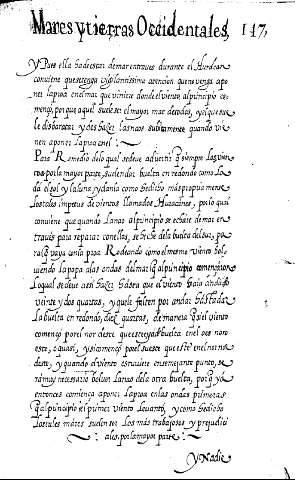 Mares y tierras Occidentales, 147
Y Pues ella ha de estar de mar en traves durante el Huracan
conviene que se tenga vigilantissima atencion que no venga apo
ner la proa en el mar que viniere donde el viento al principio co
menço, porque aquel suele ser el mayor mar de todos, y el que sue
le disbaratar y des hazer las naos subitamente quando vie
nen a poner la proa en el:~
Para Remedio de lo qual se deve advertir q siempre los vien
tos por la mayor parte, suelen dar buelta en redondo como la
da el sol y la luna, y da la como he dicho mas propriamente
los tales impetus de vientos llamados Huracanes, por lo qual
conviene que quando la nao al principio se echare de mar en
traves para reparar con ellos, se heche de la buelta del sur, pa
ra q vaya con la proa Rodeando como el mesmo viento bol
viendo la popa a las ondas del mar q al principio començaron
Lo qual se deve assi hazer hasta que el viento haia andado
veinte y dos quartas, y que le falten por andar hasta dar
La buelta en redondo, diez quartas, de manera que si el viento
començo por el nordeste que este ya de buelta en el oes noro
este, o quasi, y si començo por el sueste que este en el nornor
deste, y quando el viento estuviere en semejante punto, se
ra muy necessario bolver la nao de la otra buelta, porque ya
entonces comiença a poner la proa en las ondas primeras
q al principio el primer viento levanto, y como he dicho
los tales mares suelen ser los mas trabajosos y prejudici
ales, por la mayor parte:~
y Nadie